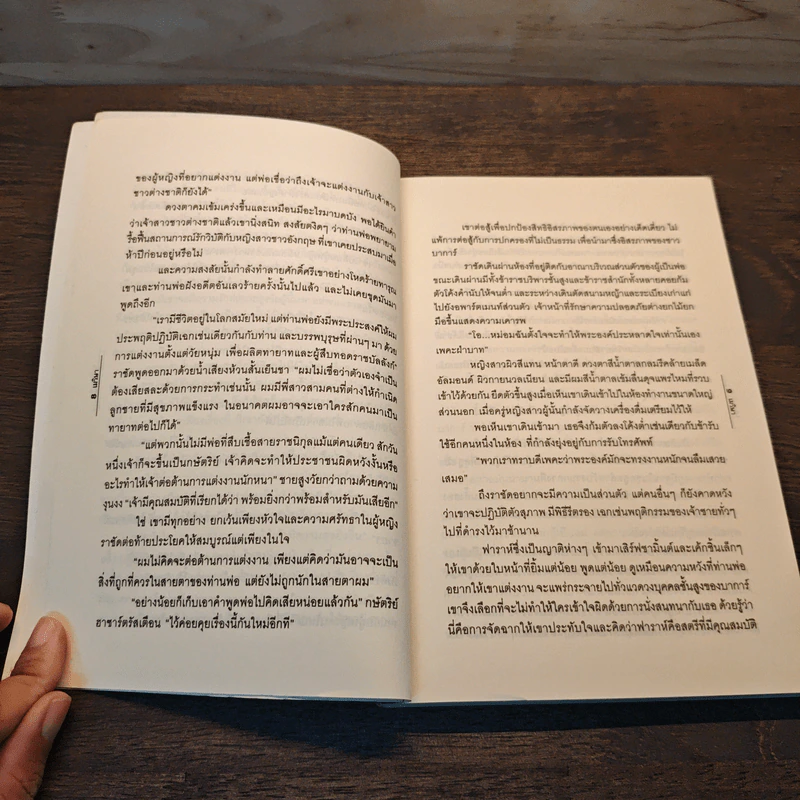 ของผู้หญิงที่อยากแต่งงาน แต่พ่อเชื่อว่าถึงเจ้าจะแต่งงานกับเจ้าสาว
ชาวต่างชาติก็ยังได้”
ดวงตาคมเข้มเคร่งขึ้นและเหมือนมีอะไรมาบดบัง พอได้ยินคำ
ว่าเจ้าสาวชาวต่างชาติแล้วเขานิ่งสนิท สงสัยตงิดๆ ว่าท่านพ่อพยายาม
รื้อฟื้นสถานการณ์รักวิบัติกับหญิงสาวชาวอังกฤษ ที่เขาเคยประสบมาเมื่อ
ห้าปีก่อนอยู่หรือไม่
และความสงสัยนั้นกำทำลายศักดิ์ศรีเขาอย่างโหดร้ายทารุณ
เขาและท่านพ่อฝังอดีตอันเลวร้ายครั้งนั้นไปแล้ว และไม่เคยขุดมันมา
พูดถึงอีก
“เรามีชีวิตอยู่ในโลกสมัยใหม่ แต่ท่านพ่อยังมีพระประสงค์ให้ผม
ประพฤติปฏิบัติเฉกเช่นเดียวกันกับท่าน และบรรพบุรุษที่ผ่านๆ มา ด้วย
การแต่งงานตั้งแต่วัยหนุ่ม เพื่อผลิตทายาทและผู้สืบทอดราชบัลลังก์”
ราชัดพูดออกมาด้วยน้ำเสียงห้วนสั้นเย็นชา “ผมไม่เชื่อว่าตัวเองจำเป็น
ต้องเสียสละด้วยการกระทำเช่นนั้น ผมมีพี่สาวสามคนที่ต่างก็ให้กำเนิด
ลูกชายที่มีสุขภาพแข็งแรง ในอนาคตผมอาจจะเอาใครสักคนมาเป็น
ทายาทต่อไปก็ได้”
“แต่พวกนั้นไม่มีพ่อที่สืบเชื้อสายราชนิกุลแม้แต่คนเดียว สักวัน
หนึ่งเจ้าก็จะขึ้นเป็นกษัตริย์ เจ้าคิดจะทำให้ประชาชนผิดหวังงั้นหรือ
อะไรทำให้เจ้าต่อต้านการแต่งงานนักหนา” ชายสูงวัยกว่าถามด้วยความ
งุนงง “เจ้ามีคุณสมบัติที่เรียกได้ว่า พร้อมยิ่งกว่าพร้อมสำหรับมันเสียอีก”
ใช่ เขามีทุกอย่าง ยกเว้นเพียงหัวใจและความศรัทธาในผู้หญิง
ราชัดต่อท้ายประโยคให้สมบูรณ์แต่เพียงในใจ
“ผมไม่คิดจะต่อต้านการแต่งงาน เพียงแต่คิดว่ามันอาจจะเป็น
สิ่งที่ถูกที่ควรในสายตาของท่านพ่อ แต่ยังไม่ถูกนักในสายตาผม”
“อย่างน้อยก็เก็บเอาคำพูดพ่อไปคิดเสียหน่อยแล้วกัน” กษัตริย์
ฮาซาร์ตรัสเตือน “ไว้ค่อยคุยเรื่องนี้กันใหม่อีกที”
8
เขาต่อสู้เพื่อปกป้องสิทธิอิสรภาพของตนเองอย่างเด็ดเดี่ยว ไม่
แพ้การต่อสู้กับการปกครองที่ไม่เป็นธรรม เพื่อนำมาซึ่งอิสรภาพของชาว
บาการ์
ราชัดเดินผ่านห้องที่อยู่ติดกับอาณาบริเวณส่วนตัวของผู้เป็นพ่อ
ขณะเดินผ่านมีทั้งข้าราชบริพารชั้นสูงและข้าราชสำนักทั้งหลายคอยก้ม
ตัวโค้งคำนับให้จนต่ำ และระหว่างเดินตัดสนามหญ้าและระเบียงเก่าแก่
ไปยังอพาร์ตเมนท์ส่วนตัว เจ้าหน้าที่รักษาความปลอดภัยต่างยกไม้ยก
มือขึ้นแสดงความเคารพ
“โอ...หม่อมฉันตั้งใจจะทำให้พระองค์ประหลาดใจเท่านั้นเอง
เพคะฝ่าบาท”
หญิงสาวผิวสีแทน หน้าตาดี ดวงตาสีน้ำตาลกลมรีคล้ายเมล็ด
อัลมอนด์ ผิวกายนวลเนียน และมีผมสีน้ำตาลเข้มลื่นดุจแพรไหมที่รวบ
เข้าไว้ด้วยกัน ยืดตัวขึ้นสูงเมื่อเห็นเขาเดินเข้าไปในห้องทำงานขนาดใหญ่
ส่วนนอก เมื่อครู่หญิงสาวผู้นั้นกำลังจัดวางเครื่องดื่มเตรียมไว้ให้
พอเห็นเขาเดินเข้ามา เธอจึงก้มตัวลงโค้งต่ำเช่นเดียวกับข้ารับ
ใช้อีกคนหนึ่งในห้อง ที่กำลังยุ่งอยู่กับการรับโทรศัพท์
“พวกเราทราบดีเพคะว่าพระองค์มักจะทรงงานหนักจนลืมเสวย
เสมอ”
ถึงราชัดอยากจะมีความเป็นส่วนตัว แต่คนอื่นๆ ก็ยังคาดหวัง
ว่าเขาจะปฏิบัติตัวสุภาพ มีพิธีรีตรอง เฉกเช่นพฤติกรรมของเจ้าชายทั่วๆ
ไปที่ดำรงไว้มาช้านาน
ฟาราห์ซึ่งเป็นญาติห่างๆ เข้ามาเสิร์ฟชามิ้นต์และเค้กชิ้นเล็กๆ
ให้เขาด้วยใบหน้าที่ยิ้มแต่น้อย พูดแต่น้อย ดูเหมือนความหวังที่ท่านพ่อ
อยากให้เขาแต่งงาน จะแพร่กระจายไปทั่วแวดวงบุคคลชั้นสูงของบาการ์
เขาจึงเลือกที่จะไม่ทำให้ใครเข้าใจผิดด้วยการนั่งสนทนากับเธอ ด้วยรู้ว่า
นี่คือการจัดฉากให้เขาประทับใจและคิดว่าฟาราห์คือสตรีที่มีคุณสมบัติ